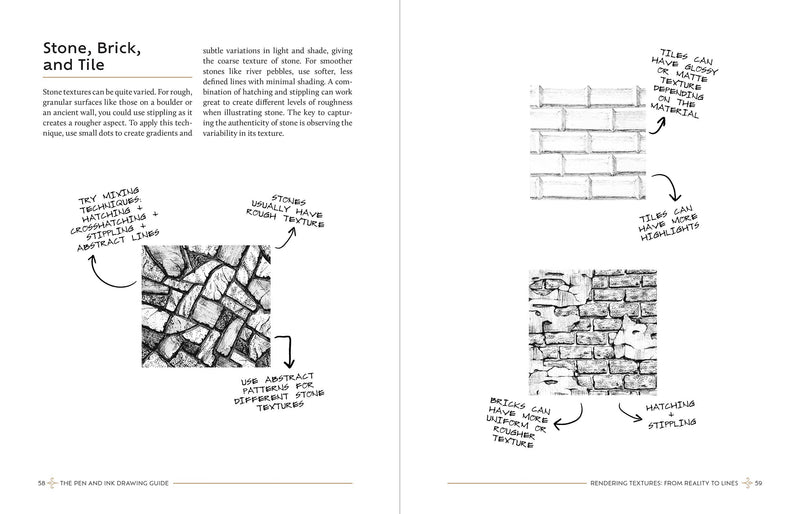 Stone, Brick,
and Tile
Stone textures can be quite varied. For rough,
granular surfaces like those on a boulder or
an ancient wall, you could use stippling as it
creates a rougher aspect. To apply this tech-
nique, use small dots to create gradients and
subtle variations in light and shade, giving
the coarse texture of stone. For smoother
stones like river pebbles, use softer, less
defined lines with minimal shading. A com-
bination of hatching and stippling can work
great to create different levels of roughness
when illustrating stone. The key to captur-
ing the authenticity of stone is observing the
variability in its texture.
TRY MIXING
TECHNIQUES:
HATCHING +
CROSSHATCHING +
STIPPLING +
ABSTRACT LINES
STONES
USUALLY HAVE
ROUGH TEXTURE
USE ABSTRACT
PATTERNS FOR
DIFFERENT STONE
TEXTURES
58 THE PEN AND INK DRAWING GUIDE
TILES CAN
HAVE GLOSSY
OR MATTE
TEXTURE
DEPENDING
ON THE
MATERIAL
TILES CAN
HAVE MORE
HIGHLIGHTS
BRICKS CAN
HAVE MORE
UNIFORM OR
ROUGHER
TEXTURE
HATCHING
+
STIPPLING
RENDERING TEXTURES: FROM REALITY TO LINES 59